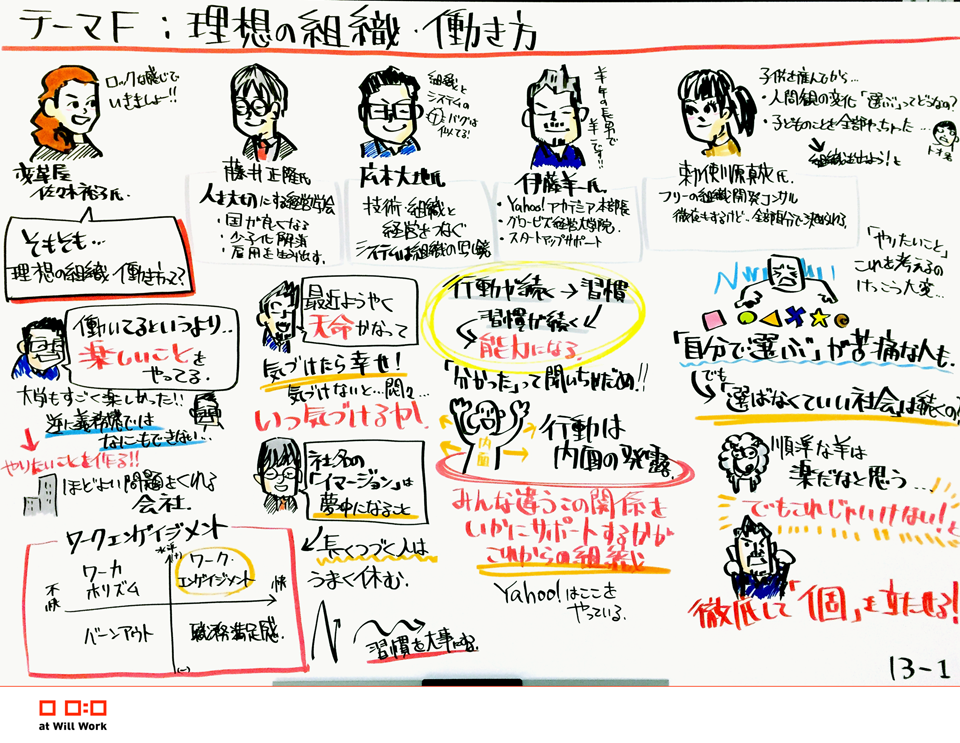 テーマF：理想の組織・働き方
ロックな感じで
いきましょー!!
変革屋
佐々木裕子氏.
藤井正隆氏
人を大切にする経営学会
・国が良くなる
・少子化解消
・雇用を生み出す.
組織と
システムの
バグは
似てる!
広木大地氏
技術・組織と
経営をつなぐ
システムは組織の写し鏡
羊年の長男で
羊一です!!
伊藤羊一氏.
・Yahoo!アカデミア本部長
・グロービス経営大学院.
・スタートアップサポート
子供を産んでから…
・人間観の変化「選ぶ」ってどうなの?
・子どものことを全部やっちゃった…
組織は出よう!と
勅使川原真衣氏.
フリーの組織開発コンサル
そもそも…
理想の組織・働き方って?
働いてるというより..
楽しいことを
やってる.
大学もすごく楽しかった!!
逆に義務感では
なにもできない…
やりたいことを作る!!
ほどよい問題をくれる
会社.
ワークエンゲイジメント
ワーカ
ホリズム
ワーク・
エンゲイジメント
不快
快
バーンアウト
職務満足感.
(ー)
最近ようやく
天命かなって
気づけたら幸せ!
気づけないと…悶々…
いつ気づけるか!
社名の
「イマージョン」は
夢中になること
長くつづく人は
うまく休む.
習慣を大事にする.
行動が続く→習慣
習慣が続く
能力になる.
「分かった」って聞いちゃだめ!!
内面
行動は
内面の発露.
みんな違うこの関係を
いかにサポートするかが
これからの組織
Yahoo!はここを
やっている.
「やりたいこと」
これを考えるの
けっこう大変…
「自分で選ぶ」が苦痛な人も.
でも
「選ばなくていい社会」は続くの?
順洋な羊は
楽だなと思う…
でもこれじゃいけない!と
徹底して「個」を立たせる!
13-1
at Will Work